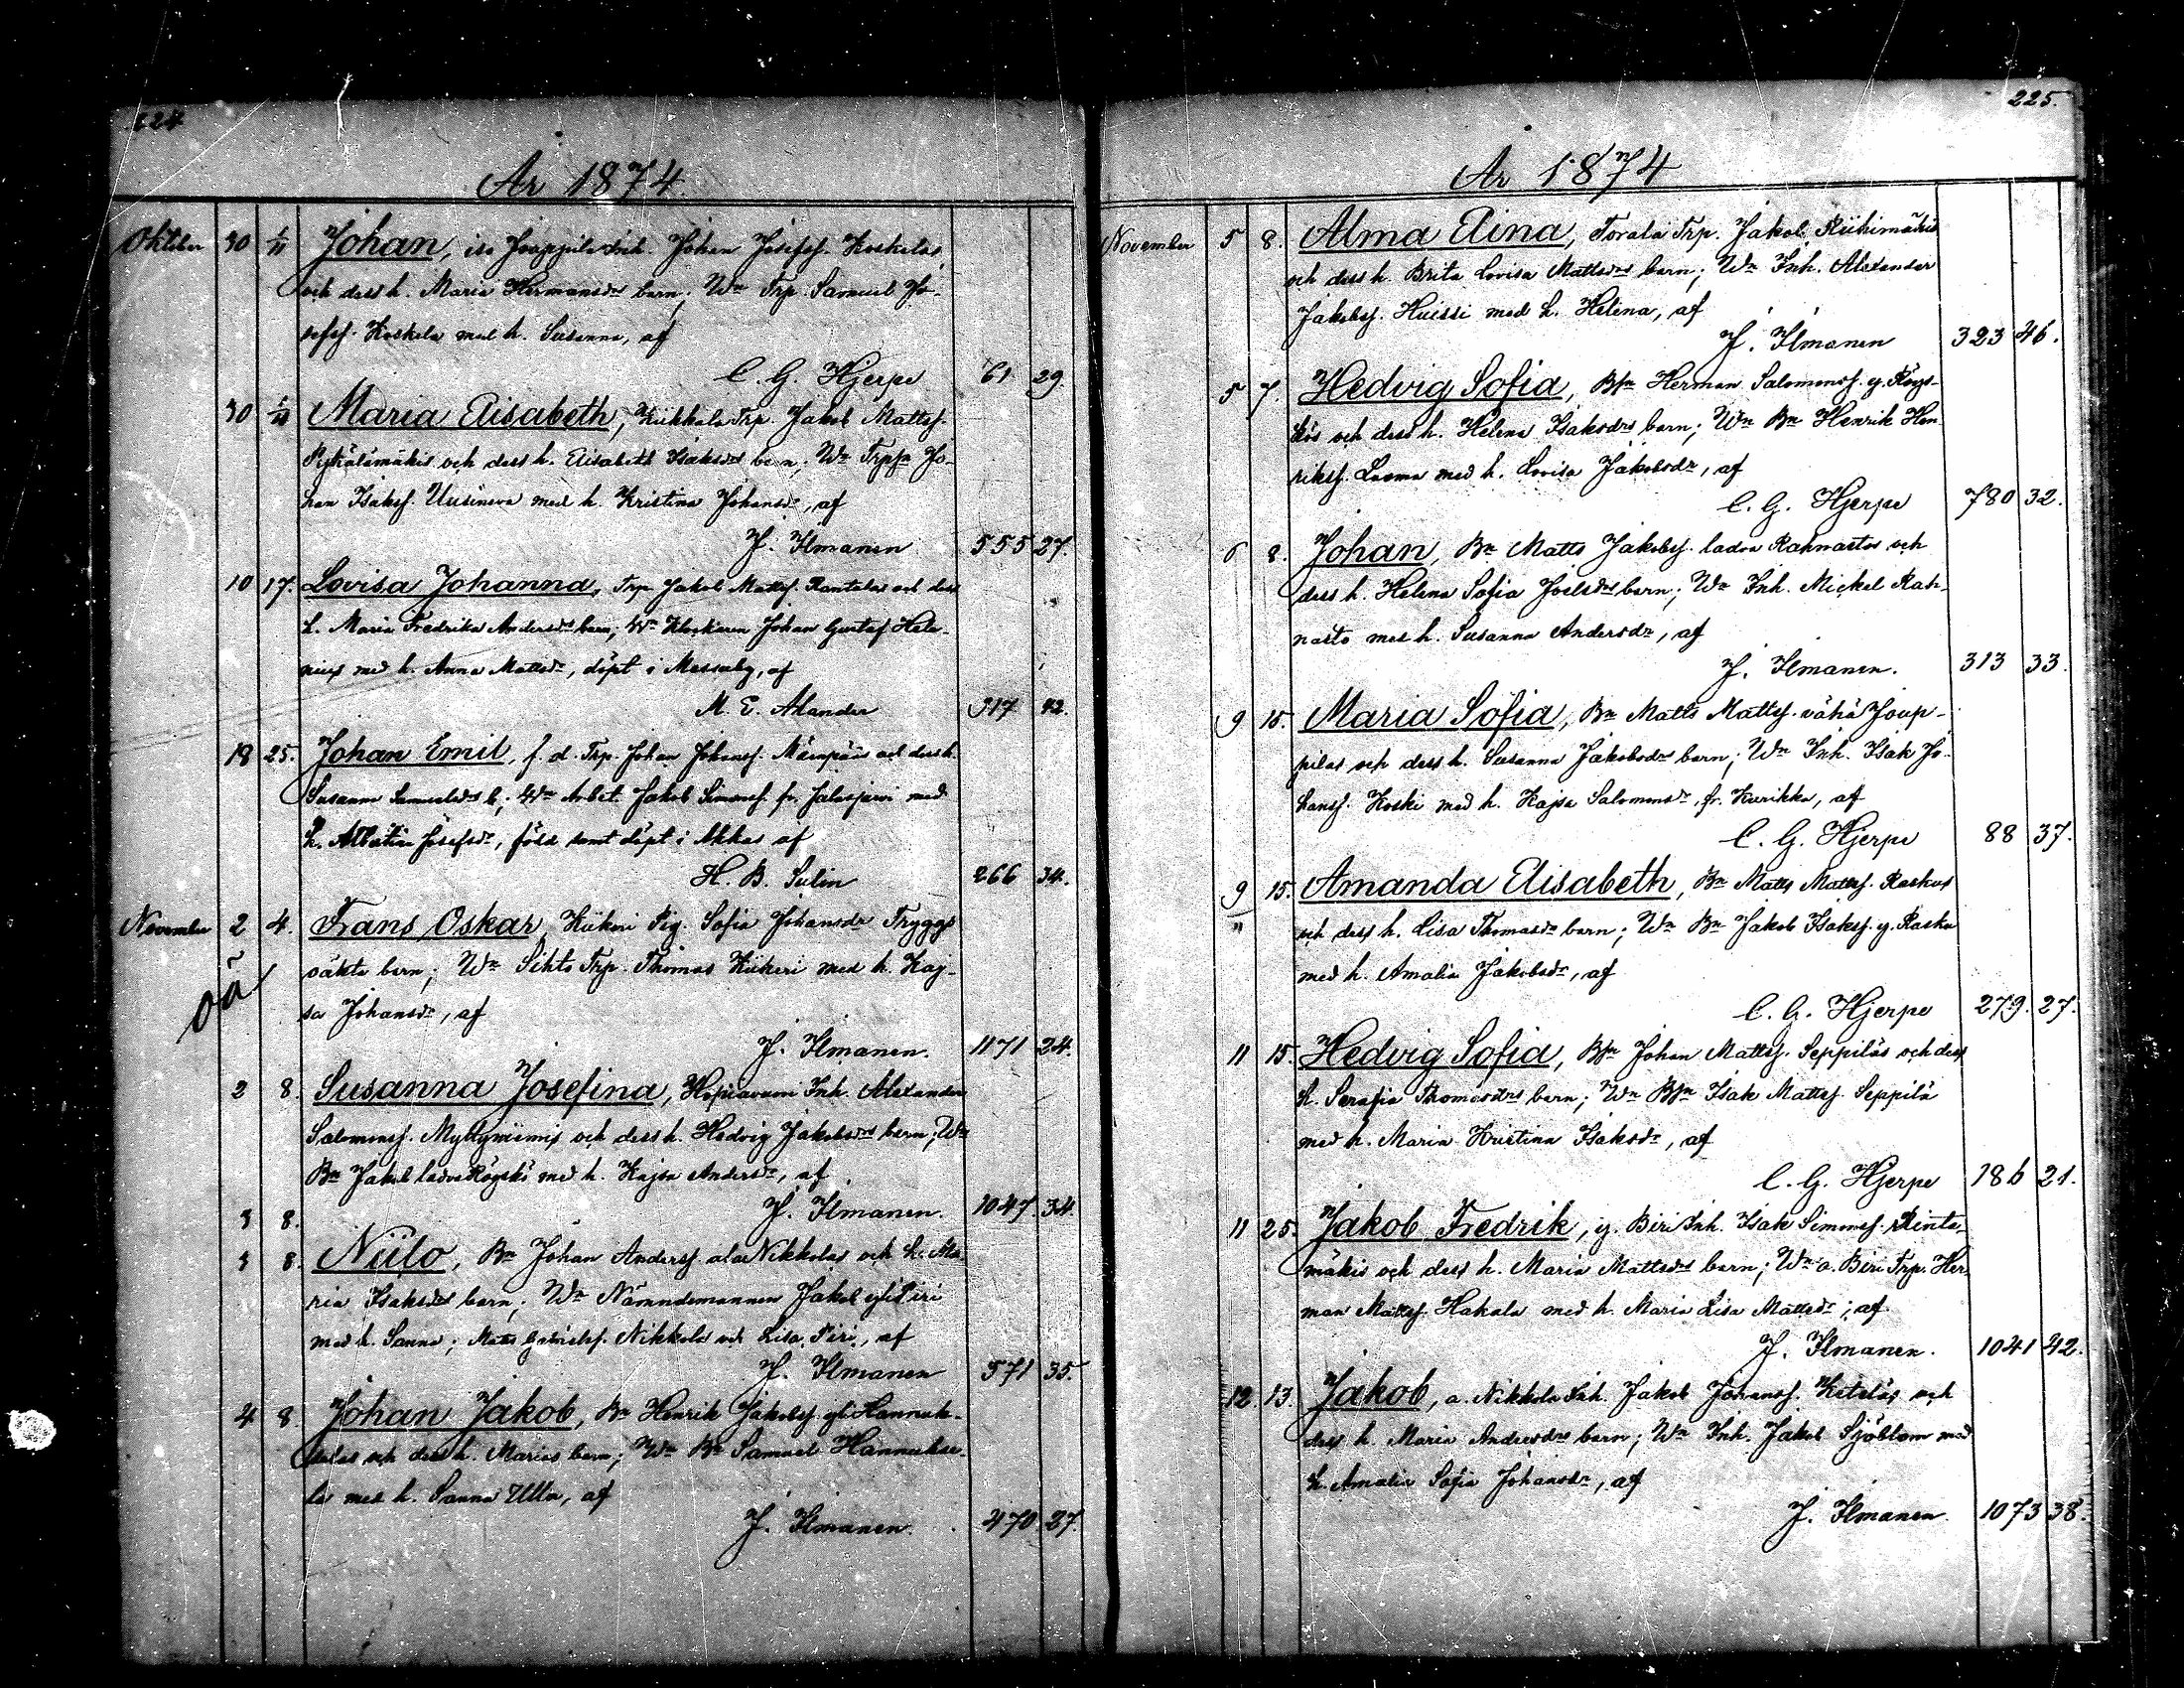 224
År 1874.
Oktober 30 1/11 Johan, iso Jouppila Inh. Johan Josefsf. Koskelas,
och dess h. Maria Hermansdrs barn; Wn Trp. Samuel Jo-
sefsf. Koskela med h. Susanna, af
C. G. Hjerpe 61 29.
30 1/11 Maria Elisabeth, Kukkola Trp. Jakob Mattsf.
och dess h. Elisabeth Isaksdrs barn; Wn Jo-
han Isaksf. Uusineva med h. Kristina Johansdr, af
J. Ilmanen 555 27.
10 17. Lovisa Johanna, Trp. Jakob Mattsf. Rantalas och dess
h. Maria Fredrika Andersdrs barn; Wn Klockaren Johan Gustaf Hele-
nius med h. Anna Mattsdr, döpt i Messuby, af
M. E. Alander 917 42.
18 25. Johan Emil, f. d. Trp. Johan Johansf. Närvpääs och dess h.
Susanna Samuelsdrs b.; Wn Arbet. Jakob Simonsf. fr. Jalasjärvi med
h. Albertina Josefsdr, född samt döpt i Akkas af
H. B. Sulin 266 34.
November 2 4. Frans Oskar, Kiikeri Pig. Sofia Johansdr Tryggs
oä
oäkta barn; Wn Sihto Trp. Thomas Kiikeri med h. Kaj-
sa Johansdr, af
J. Ilmanen. 1171 24.
2 8. Susanna Josefina, Hopiavuori Inh. Alexander
Salomonsf. Myllyniemis och dess h. Hedvig Jakobsdrs barn; Wn
Bn Jakob ladva Röyskö med h. Kajsa Andersdr, af
J. Ilmanen. 1047. 34.
3 8.
3 8. Niilo, Bn Johan Andersf. ala Nikkolas och h. Ma-
ria Isaksdrs barn; Wn Nämndemannen Jakob yli Piri
med h. Sanna; Matts Gabrielsf. Nikkola och Lisa Piri, af
J. Ilmanen 571 35.
4 8. Johan Jakob, Bn Henrik Jakobsf. yli Hannuk-
selas och dess h. Marias barn; Wn Bn Samuel Hannukse-
la med h. Sanna Ulla, af
J. Ilmanen. 470. 27.
225.
År 1874
November 5 8. Alma Elina, Torala Trp. Jakob Riihimäkis
och dess h. Brita Lovisa Mattsdrs barn; Wn Inh. Alexander
Jakobsf. Huissi med h. Helena, af
J. Ilmanen 323 46.
5 7. Hedvig Sofia, Bsn Herman Salomonsf. y. Röys-
kös och dess h. Helena Isaksdrs barn; Wn Bn Henrik Hen
riksf. Luoma med h. Lovisa Jakobsdr, af
C. G. Hjerpe 780 32.
6 8. Johan, Bn Matts Jakobsf. ladva Rahnastos och
dess h. Helena Sofia Joelsdrs barn; Wn Inh. Mickel Rah-
nasto med h. Susanna Andersdr, af
J. Ilmanen. 313 33.
9 15. Maria Sofia, Bn Matts Mattsf. vähä Joup-
pilas och dess h. Susanna Jakobsdrs barn; Wn Inh. Isak Jo-
hansf. Koski med h. Kajsa Salomonsdr, fr. Kurikka, af
C. G. Hjerpe 88 37.
9 15. Amanda Elisabeth, Bn Matts Mattsf. Raskus
" och dess h. Lisa Thomasdrs barn; Wn Bn Jakob Isaksf. y. Rasku
med h. Amalia Jakobsdr, af
C. G. Hjerpe 279. 27.
11 15. Hedvig Sofia, Bsn Johan Mattsf. Seppiläs och dess
h. Serafia Thomasdrs barn; Wn Bsn Isak Mattsf. Seppilä
med h. Maria Kristina Isaksdr, af
C. G. Hjerpe 186 21.
11 25. Jakob Fredrik, y. Biri Inh. Isak Simonsf. Rinta-
mäkis och dess h. Maria Mattsdrs barn; Wn a. Biri Trp. Her-
man Mattsf. Hakala med h. Maria Lisa Mattsdr; af
J. Ilmanen. 1041 42.
12. 13. Jakob, a. Nikkola Inh. Jakob Johansf. Ketoläs och
dess h. Maria Andersdrs barn; Wn Inh. Jakob Sjöblom med
h. Amalia Sofia Johansdr, af
J. Ilmanen. 1073 38.